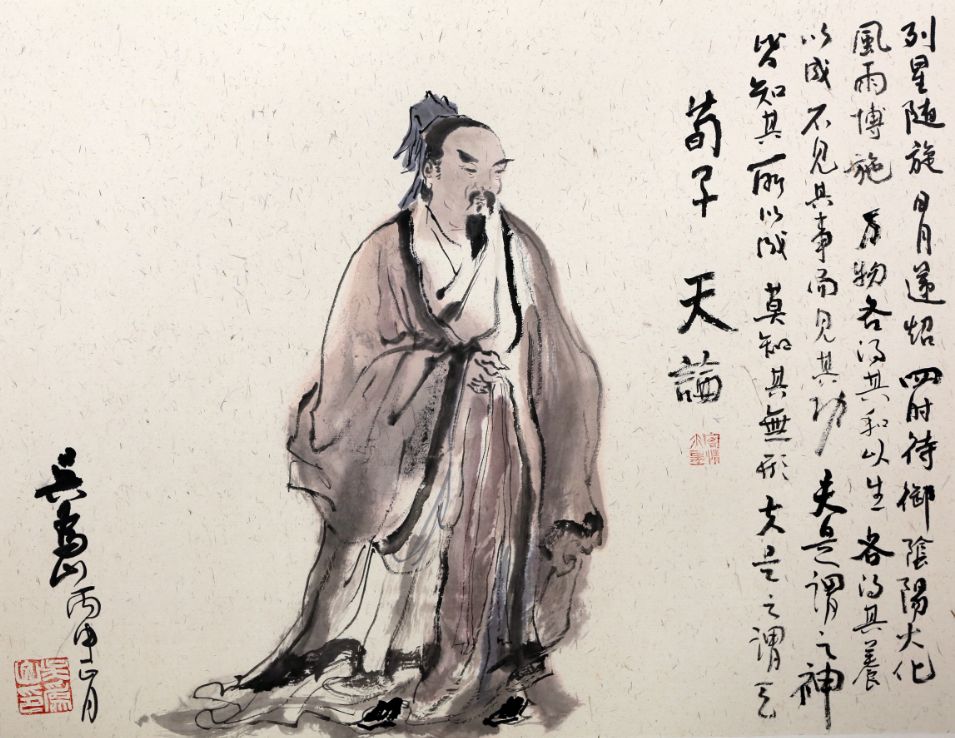 列星随旋 日月遞炤 四时待御 陰陽大化
風雨博施 万物各得其和以生 各得其養
以成 不見其事而見其功 夫是謂之神
皆知其所以成 莫知其無形 夫是之謂天
荀子 天論
吳為山 丙申正月